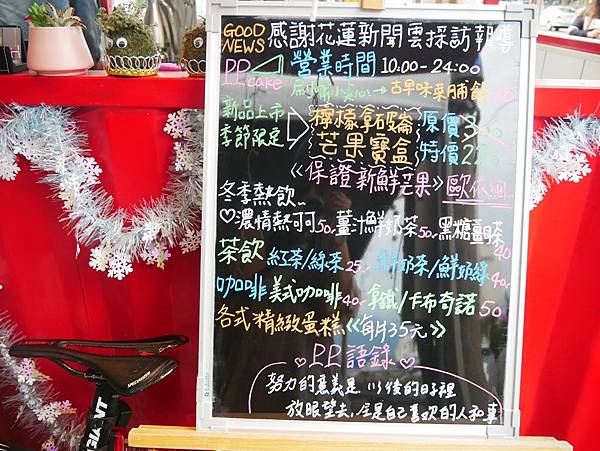 GOOD NEWS 感謝花蓮新聞雲採訪報導
P.P. cake 營業時間 10:00-24:00
古早味菜脯餅
新品上市
季節限定
檸檬拿破崙 原價
芒果寶盒 特價
《保證新鮮芒果》歐依細
冬季熱飲
♡濃情熱可可50 薑汁鮮奶茶50 黑糖薑母茶40
茶飲 紅茶/綠茶25 鮮奶茶/鮮奶綠40
咖啡 美式咖啡40 拿鐵/卡布奇諾50
各式精緻蛋糕《每片35元》
♡P.P.語錄♡
努力的意義是 以後的日子裡
放眼望去,全是自己喜歡的人和事
SPECIALIZED
GIANT